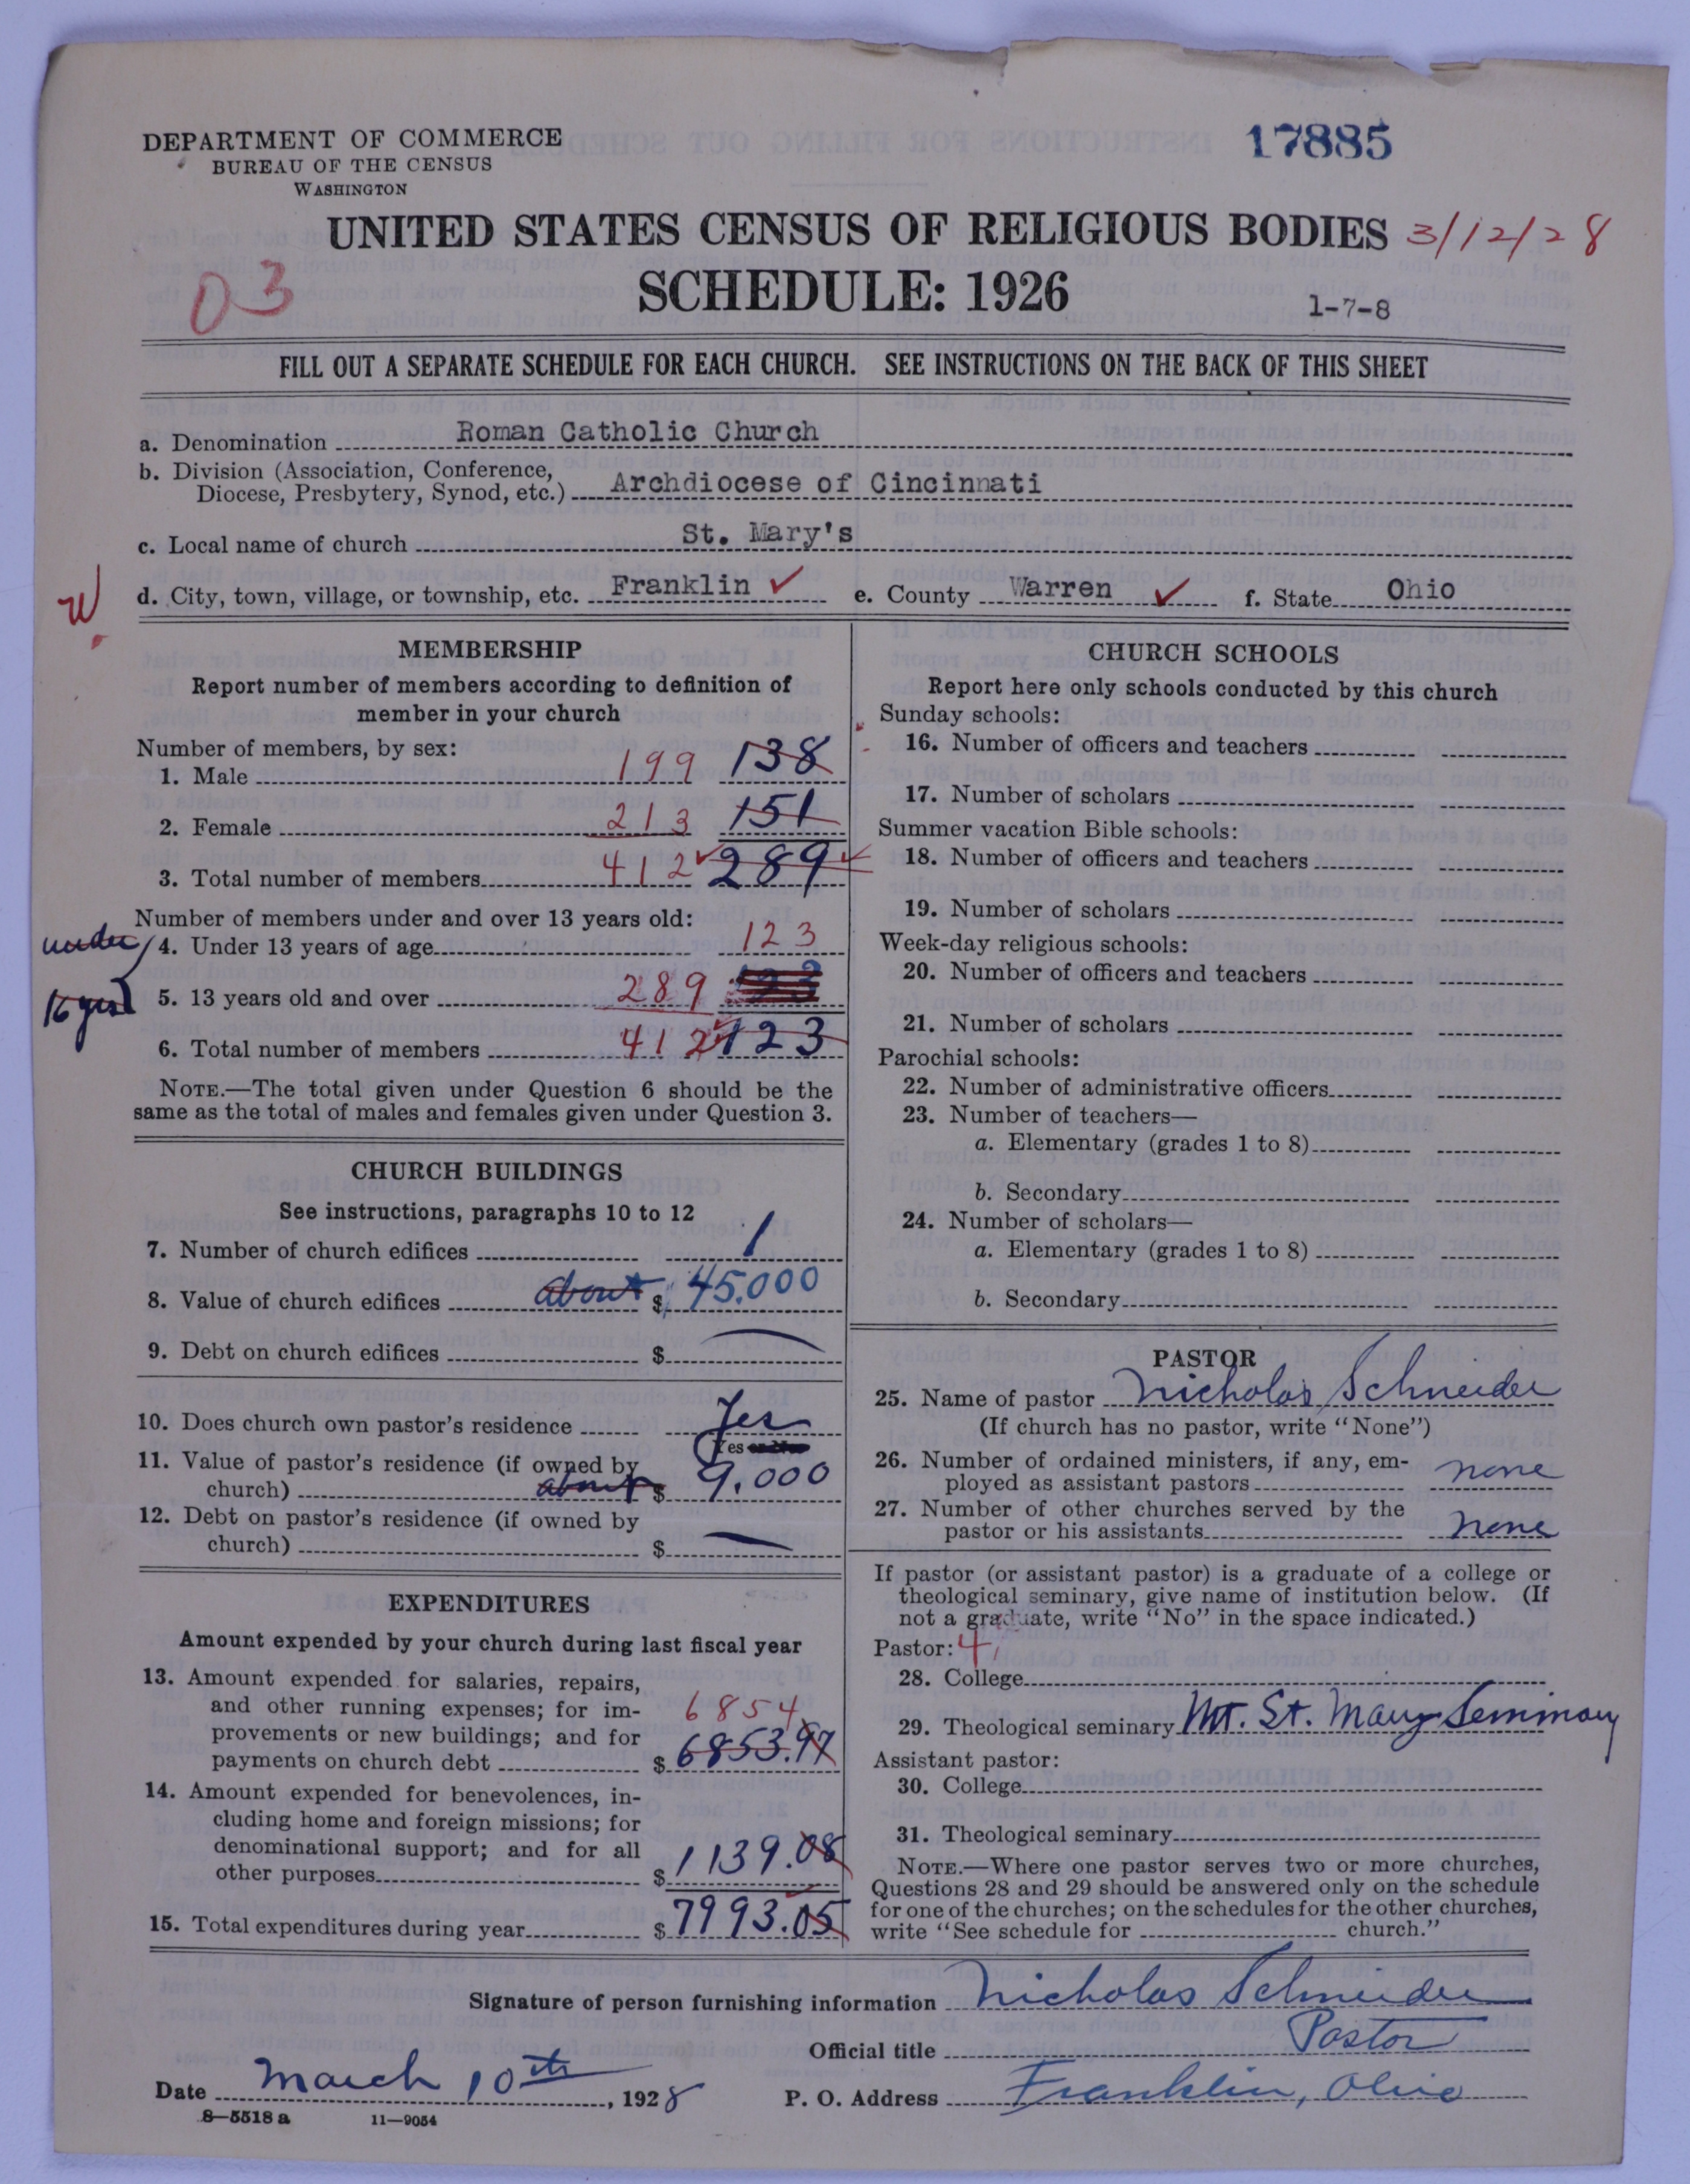 DEPARTMENT OF COMMERCE
BUREAU OF THE CENSUS
WASHINGTON
17885
UNITED STATES CENSUS OF RELIGIOUS BODIES 3/12/28
03
SCHEDULE: 1926
1-7-8
FILL OUT A SEPARATE SCHEDULE FOR EACH CHURCH. SEE INSTRUCTIONS ON THE BACK OF THIS SHEET
a. Denomination Roman Catholic Church
b. Division (Association, Conference,
Diocese, Presbytery, Synod, etc.) Archdiocese of Cincinnati
c. Local name of church St. Mary's
W.
d. City, town, village, or township, etc. Franklin ✓ e. County Warren ✓ f. State Ohio
MEMBERSHIP
Report number of members according to definition of
member in your church
Number of members, by sex:
1. Male 199 138
2. Female 213 151
3. Total number of members 412 ✓ 289 ✓
Number of members under and over 13 years old:
under
4. Under 13 years of age 123
16 yrs
5. 13 years old and over 289 123
6. Total number of members 412 ✓ 123
NOTE.—The total given under Question 6 should be the
same as the total of males and females given under Question 3.
CHURCH BUILDINGS
See instructions, paragraphs 10 to 12
7. Number of church edifices 1
8. Value of church edifices about $ 45.000
9. Debt on church edifices $ —
10. Does church own pastor's residence Yes
Yes or No
11. Value of pastor's residence (if owned by
church) about $ 9.000
12. Debt on pastor's residence (if owned by
church) $ —
EXPENDITURES
Amount expended by your church during last fiscal year
13. Amount expended for salaries, repairs,
and other running expenses; for im- 6854
provements or new buildings; and for
payments on church debt $ 6853.97
14. Amount expended for benevolences, in-
cluding home and foreign missions; for
denominational support; and for all
other purposes $ 1139.08
15. Total expenditures during year $ 7993.05
CHURCH SCHOOLS
Report here only schools conducted by this church
Sunday schools:
16. Number of officers and teachers
17. Number of scholars
Summer vacation Bible schools:
18. Number of officers and teachers
19. Number of scholars
Week-day religious schools:
20. Number of officers and teachers
21. Number of scholars
Parochial schools:
22. Number of administrative officers
23. Number of teachers—
a. Elementary (grades 1 to 8)
b. Secondary
24. Number of scholars—
a. Elementary (grades 1 to 8)
b. Secondary
PASTOR
25. Name of pastor Nicholas Schneider
(If church has no pastor, write "None")
26. Number of ordained ministers, if any, em-
ployed as assistant pastors none
27. Number of other churches served by the
pastor or his assistants none
If pastor (or assistant pastor) is a graduate of a college or
theological seminary, give name of institution below. (If
not a graduate, write "No" in the space indicated.)
Pastor: 4,
28. College
29. Theological seminary Mt. St. Mary Seminary
Assistant pastor:
30. College
31. Theological seminary
NOTE.—Where one pastor serves two or more churches,
Questions 28 and 29 should be answered only on the schedule
for one of the churches; on the schedules for the other churches,
write "See schedule for church."
Signature of person furnishing information Nicholas Schneider
Official title Pastor
Date March 10th, 1928
P. O. Address Franklin, Ohio
8—5518 a 11—9054